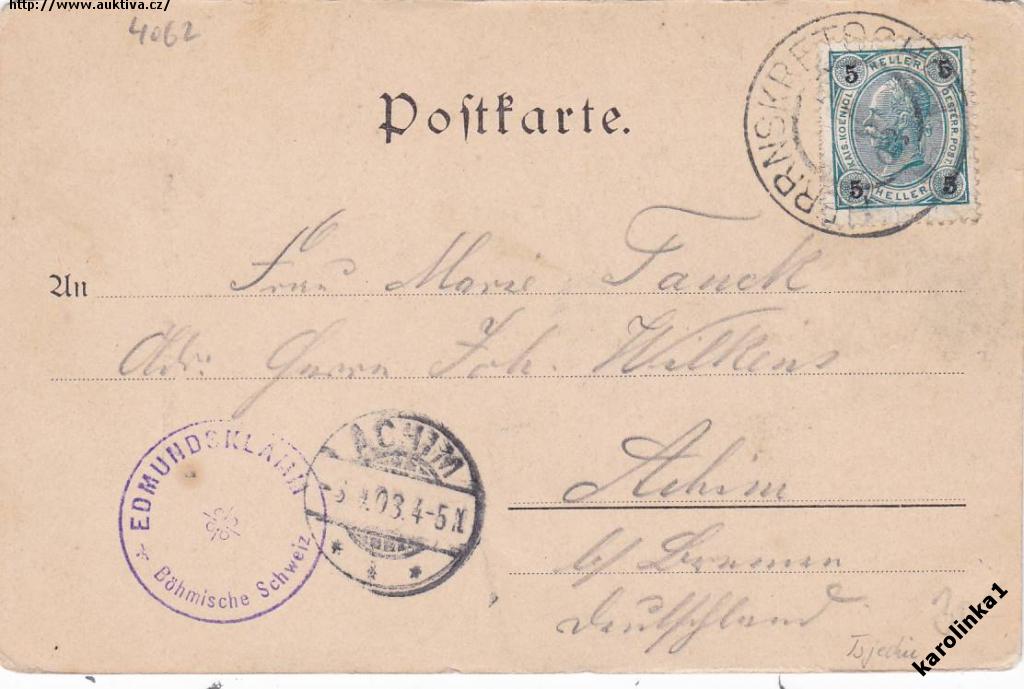 http://www.auktiva.cz/
4062
Postkarte.
HERRNSKRETSCH
5 HELLER 5
KAIS. KOENIGL.
OESTERR. POST.
5 HELLER 5
An Frau Marie Tanck
Adr. Herrn Joh. Wilkens
Achim
b/ Bremen
Deutschland
EDMUNDSKLAMM
* Böhmische Schweiz
ACHIM
03. 4-5 N
* * *
Tsjechie
karolinka1